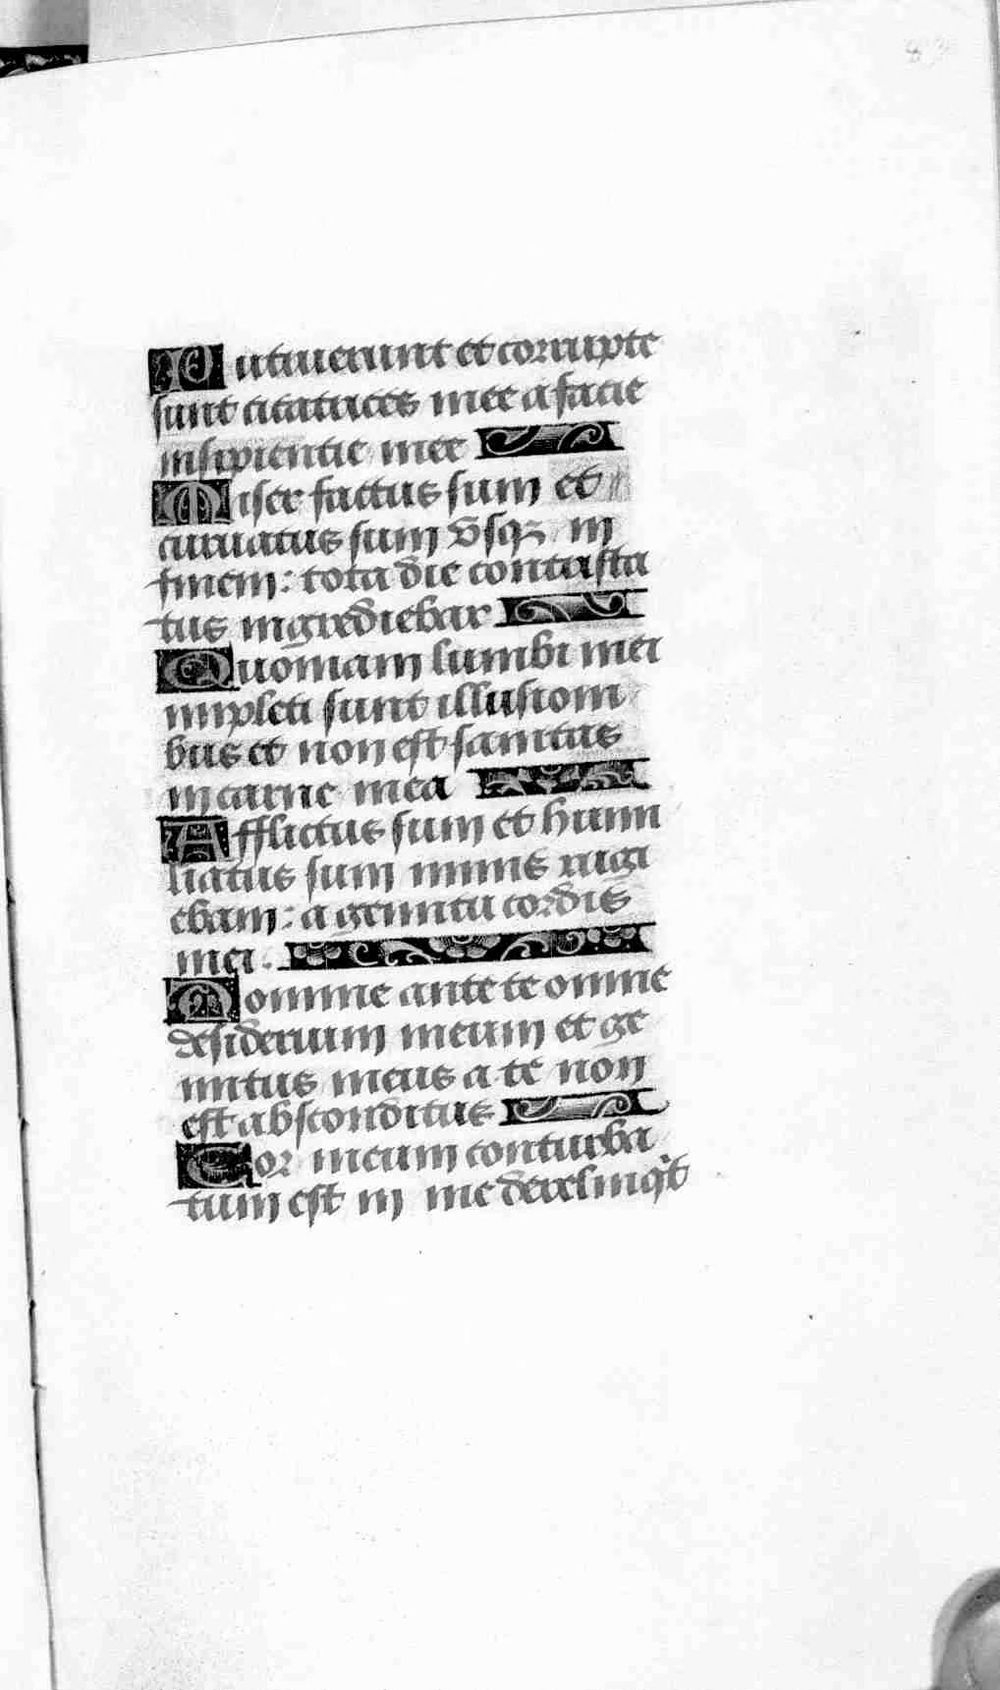 Putruerunt et corrupte
sunt cicatrices mee a facie
insipientie mee
Miser factus sum et
curuatus sum vsqꝫ in
finem: tota die contrista
tus ingrediebar
Quoniam lumbi mei
impleti sunt illusioni
bus et non est sanitas
in carne mea
Afflictus sum et humi
liatus sum nimis rugi
ebam: a gemitu cordis
mei.
Domine ante te omne
desiderium meum et ge
mitus meus a te non
est absconditus
Cor meum conturba
tum est in me derelinqͥt